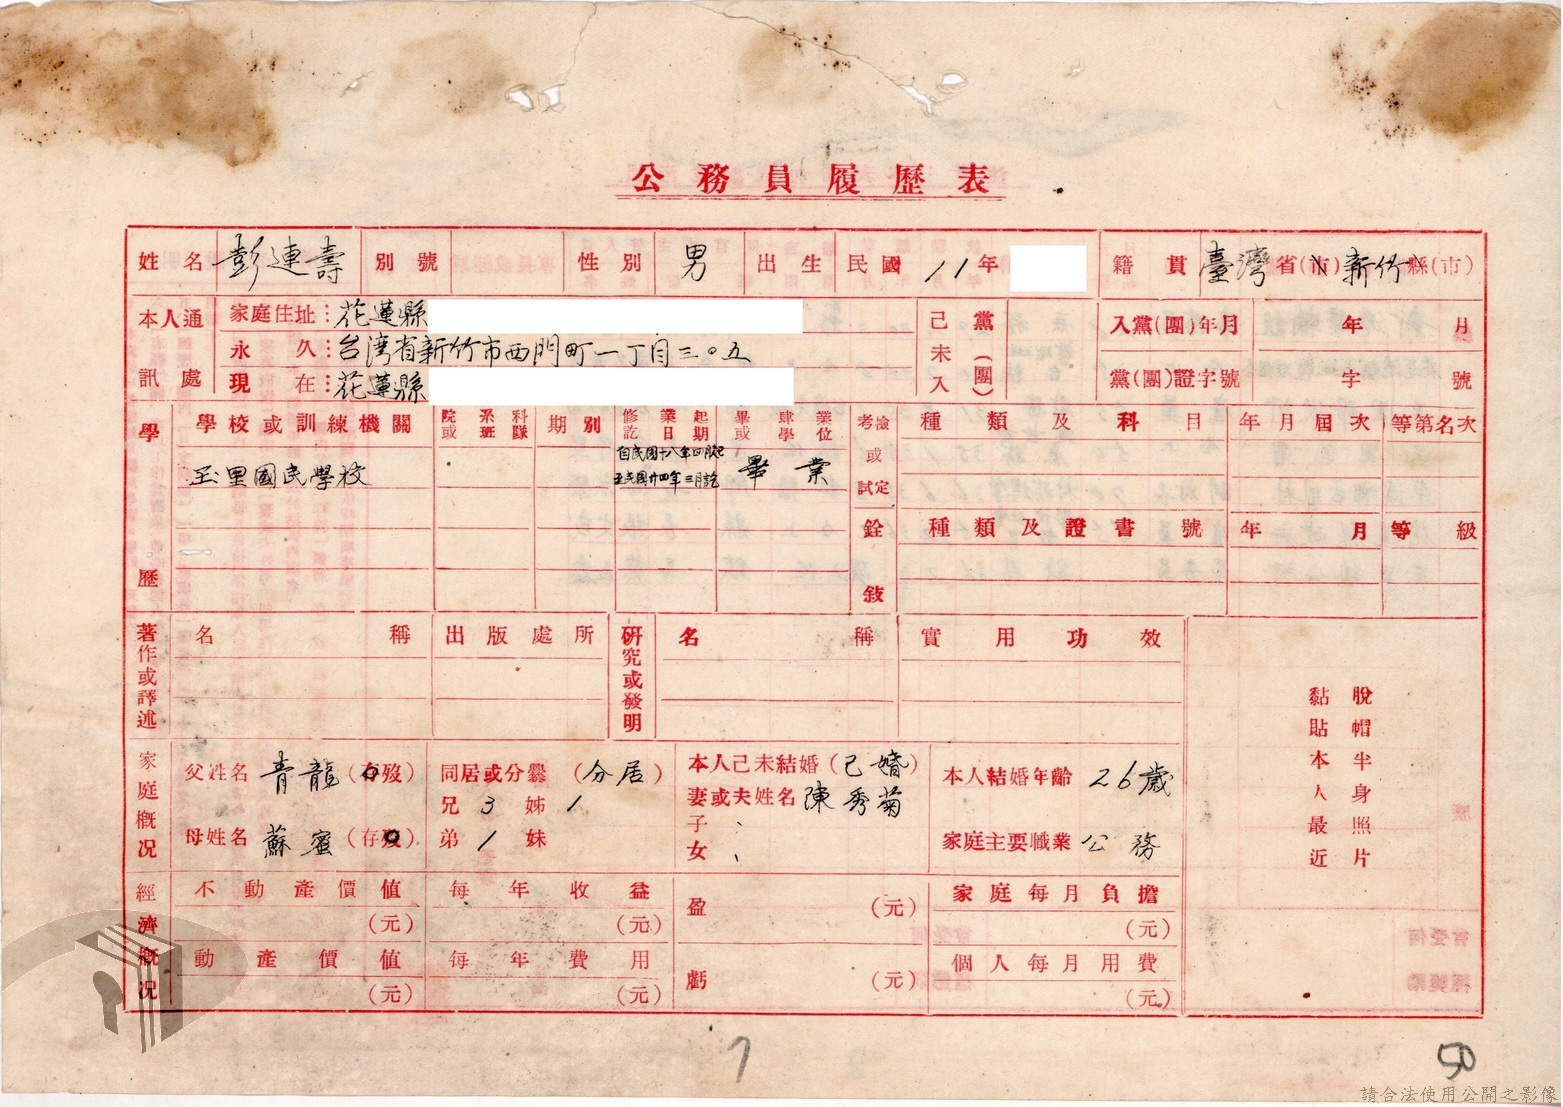 公務員履歷表
姓名 彭連壽 別號 性別 男 出生民國 11年 籍貫 臺灣省(市) 新竹縣(市)
本人通訊處 家庭住址：花蓮縣
永久：台湾省新竹市西門町一丁目三〇五
現在：花蓮縣
己未入黨(團) 入黨(團)年月 年 月
黨(團)證字號 字 號
學歷 學校或訓練機關 院或 系班 科隊 期別 修訖業日起期 畢或肄學業位 考檢或試定 種類及科目 年月屆次 等第名次
玉里國民學校 自民國十八年四月起 至民國廿四年三月訖 畢業
銓敘 種類及證書號 年月 等級
著作或譯述 名稱 出版處所 研究或發明 名稱 實用功效
脫帽半身照片
黏貼本人最近
家庭概況 父姓名 青龍 (存歿) 同居或分爨 (分居) 本人己未結婚 (己婚) 本人結婚年齡 26歲
兄 3 姊 1 妻或夫姓名 陳秀菊
母姓名 蘇蜜 (存歿) 弟 1 妹 子女 家庭主要職業 公務
經濟概況 不動產價值 (元) 每年收益 (元) 盈 (元) 家庭每月負擔 (元)
動產價值 (元) 每年費用 (元) 虧 (元) 個人每月用費 (元)
7
50
請合法使用公開之影像